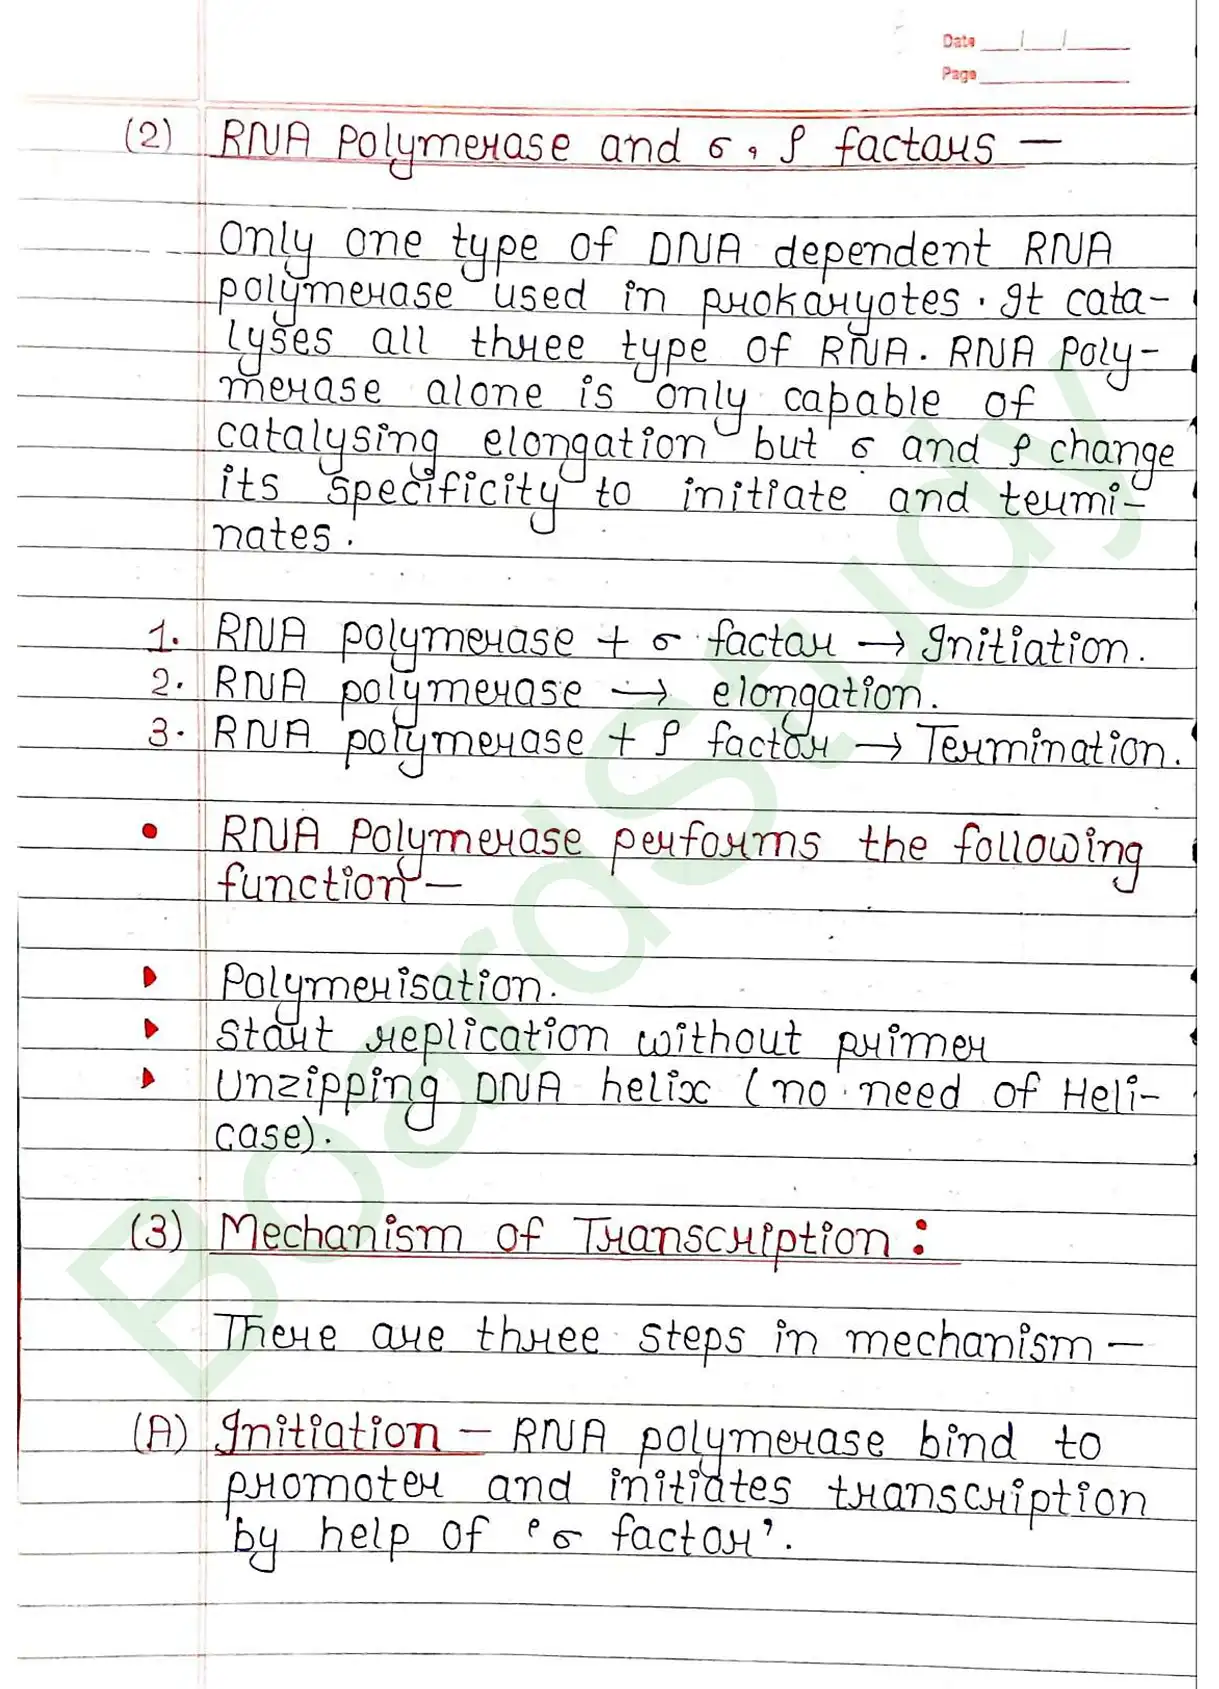 Date
Page
(2) RNA Polymerase and σ, ρ factors —
Only one type of DNA dependent RNA
polymerase used in prokaryotes. It cata-
lyses all three type of RNA. RNA Poly-
merase alone is only capable of
catalysing elongation but σ and ρ change
its specificity to initiate and termi-
nates.
1. RNA polymerase + σ factor → Initiation.
2. RNA polymerase → elongation.
3. RNA polymerase + ρ factor → Termination.
• RNA Polymerase performs the following
function —
Polymerisation.
Start replication without primer
Unzipping DNA helix (no need of Heli-
case).
(3) Mechanism of Transcription :
There are three steps in mechanism —
(A) Initiation — RNA polymerase bind to
promoter and initiates transcription
by help of 'σ factor'.
BoardStudy